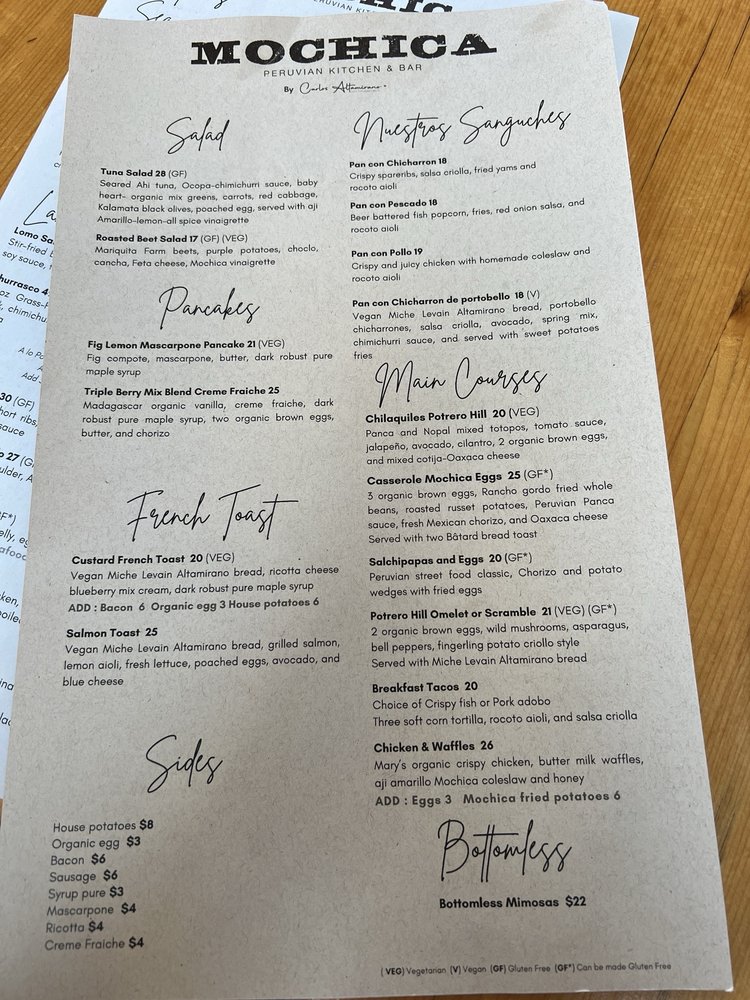 MOCHICA
PERUVIAN KITCHEN & BAR
By Carlos Altamirano
Salad
Tuna Salad 28 (GF)
Seared Ahi tuna, Ocopa-chimichurri sauce, baby
heart- organic mix greens, carrots, red cabbage,
Kalamata black olives, poached egg, served with aji
Amarillo-lemon-all spice vinaigrette
Roasted Beet Salad 17 (GF) (VEG)
Mariquita Farm beets, purple potatoes, choclo,
cancha, Feta cheese, Mochica vinaigrette
Pancakes
Fig Lemon Mascarpone Pancake 21 (VEG)
Fig compote, mascarpone, butter, dark robust pure
maple syrup
Triple Berry Mix Blend Creme Fraiche 25
Madagascar organic vanilla, creme fraiche, dark
robust pure maple syrup, two organic brown eggs,
butter, and chorizo
French Toast
Custard French Toast 20 (VEG)
Vegan Miche Levain Altamirano bread, ricotta cheese
blueberry mix cream, dark robust pure maple syrup
ADD : Bacon 6 Organic egg 3 House potatoes 6
Salmon Toast 25
Vegan Miche Levain Altamirano bread, grilled salmon,
lemon aioli, fresh lettuce, poached eggs, avocado, and
blue cheese
Sides
House potatoes $8
Organic egg $3
Bacon $6
Sausage $6
Syrup pure $3
Mascarpone $4
Ricotta $4
Creme Fraiche $4
Nuestros Sanguches
Pan con Chicharron 18
Crispy spareribs, salsa criolla, fried yams and
rocoto aioli
Pan con Pescado 18
Beer battered fish popcorn, fries, red onion salsa, and
rocoto aioli
Pan con Pollo 19
Crispy and juicy chicken with homemade coleslaw and
rocoto aioli
Pan con Chicharron de portobello 18 (V)
Vegan Miche Levain Altamirano bread, portobello
chicharrones, salsa criolla, avocado, spring mix,
chimichurri sauce, and served with sweet potatoes
fries
Main Courses
Chilaquiles Potrero Hill 20 (VEG)
Panca and Nopal mixed totopos, tomato sauce,
jalapeño, avocado, cilantro, 2 organic brown eggs,
and mixed cotija-Oaxaca cheese
Casserole Mochica Eggs 25 (GF*)
3 organic brown eggs, Rancho gordo fried whole
beans, roasted russet potatoes, Peruvian Panca
sauce, fresh Mexican chorizo, and Oaxaca cheese
Served with two Bâtard bread toast
Salchipapas and Eggs 20 (GF*)
Peruvian street food classic, Chorizo and potato
wedges with fried eggs
Potrero Hill Omelet or Scramble 21 (VEG) (GF*)
2 organic brown eggs, wild mushrooms, asparagus,
bell peppers, fingerling potato criollo style
Served with Miche Levain Altamirano bread
Breakfast Tacos 20
Choice of Crispy fish or Pork adobo
Three soft corn tortilla, rocoto aioli, and salsa criolla
Chicken & Waffles 26
Mary's organic crispy chicken, butter milk waffles,
aji amarillo Mochica coleslaw and honey
ADD : Eggs 3 Mochica fried potatoes 6
Bottomless
Bottomless Mimosas $22
( VEG) Vegetarian (V) Vegan (GF) Gluten Free (GF*) Can be made Gluten Free
Lomo
Stir-fried
soy sauce,
30 (GF)
sauce
27